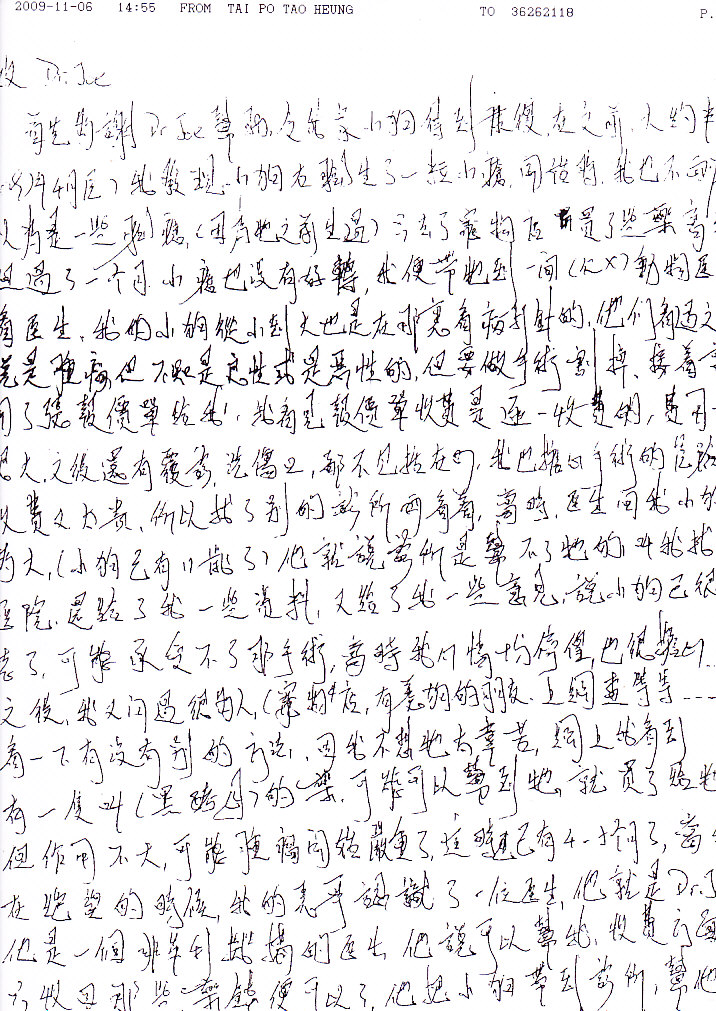 2009-11-06 14:55 FROM TAI PO TAO HEUNG TO 36262118 P.
Dr. Joe
首先感謝Dr Joe幫助,令我家小狗得到康復,在之前,大約半
年4月)我發現小狗右腳生了一粒小瘤,開始時,我也不知
為是一些腳瘤,(因為牠之前生過)只去了寵物店買了些藥膏
過了一個月,小瘤也沒有好轉,我便帶牠到一間(XX)動物醫
看医生,我的小狗從小到大也是在那裏看病打針的,他們看過之
說是腫瘤但不知是良性或是惡性的,但要做手術割掉,接着
開了張報價單給我,我看見報價單收費是逐一收費的,費用
大,之後還有覆診,洗傷口,都不包括在內,我也擔心手術的
收費又太貴,所以找了別的診所再看看,當時,医生問我小狗
大,(小狗已有11歲了)他就說診所是幫不了牠的叫我找
医院,還給了我一些資料,又給了我一些意見,說小狗已很
老了,可能承受不了那手術,當時我心情十分徬徨,也很擔心...
之後,我又問過很多人,(寵物店,有養狗的朋友,上網查等等----
看一下有沒有別的方法,因我不想牠太辛苦,網上我看到
有一隻叫( )的藥,可能可以幫到牠,就買了
但作用不大,可能腫瘤開始嚴重了,這時已有4-5個月了,當
在絕望的時候,我的 認識了一位医生,他就是Dr.J
他是一個非牟利機構的医生,他說可以幫我,收費
只收回那些藥錢便可以了,他把小狗帶到診所,幫他